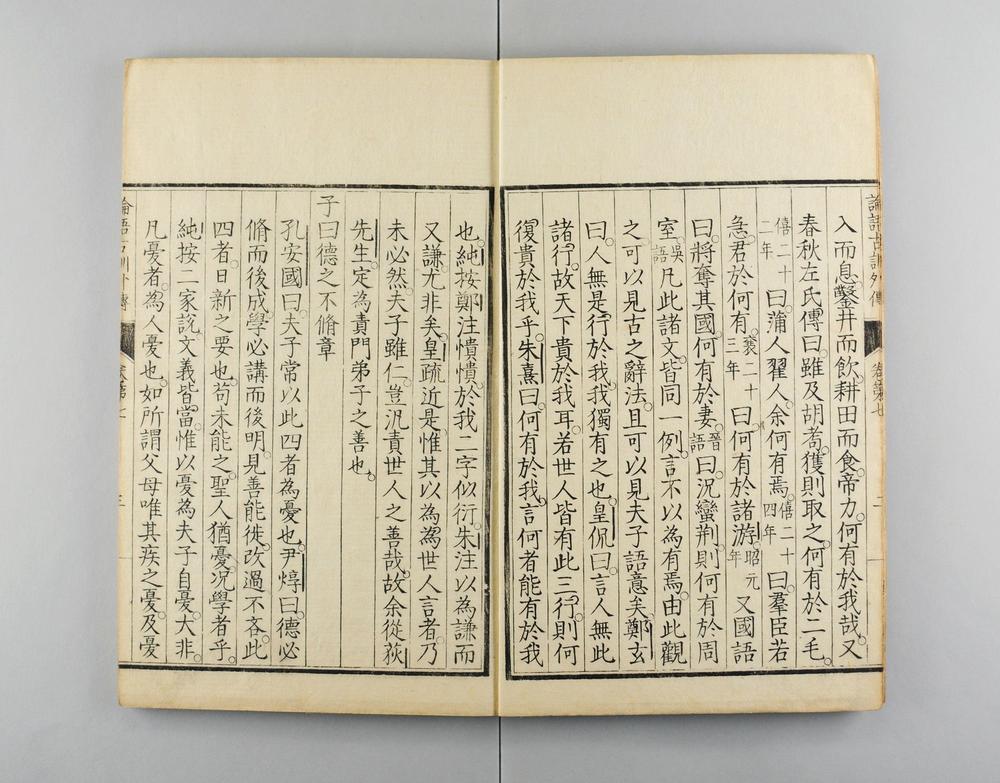 論語古訓外傳 卷第七 二
入而息。鑿井而飲。耕田而食。帝力何有於我哉。又
春秋左氏傳曰。雖及胡耇。獲則取之。何有於二毛。
僖二十二年曰。蒲人翟人。余何有焉。僖二十四年曰。羣臣若
急。君於何有。襄二十三年曰。何有於諸游。昭元年又國語
曰。將奪其國。何有於妻。晉語曰。況蠻荆。則何有於周
室。吳語凡此諸文。皆同一例。言不以為有焉。由此觀
之。可以見古之辭法。且可以見夫子語意矣。鄭玄
曰。人無是行於我。我獨有之也。皇侃曰。言人無此
諸行。故天下貴於我耳。若世人皆有此三行。則何
復貴於我乎。朱熹曰。何有於我。言何者能有於我
也。純按鄭注憒憒。於我二字似衍。朱注以為謙而
又謙。尤非矣。皇疏近是。惟其以為為世人言者。乃
未必然。夫子雖仁。豈汎責世人之善哉。故余從荻
先生。定為責門弟子之善也。
子曰德之不脩章
孔安國曰。夫子常以此四者為憂也。尹焞曰。德必
脩而後成。學必講而後明。見善能徙。改過不吝。此
四者。日新之要也。苟未能之。聖人猶憂。況學者乎。
純按二家說。文義皆當。惟以憂為夫子自憂。大非。
凡憂者。為人憂也。如所謂父母唯其疾之憂。及憂
論語古訓外傳 卷第七 三